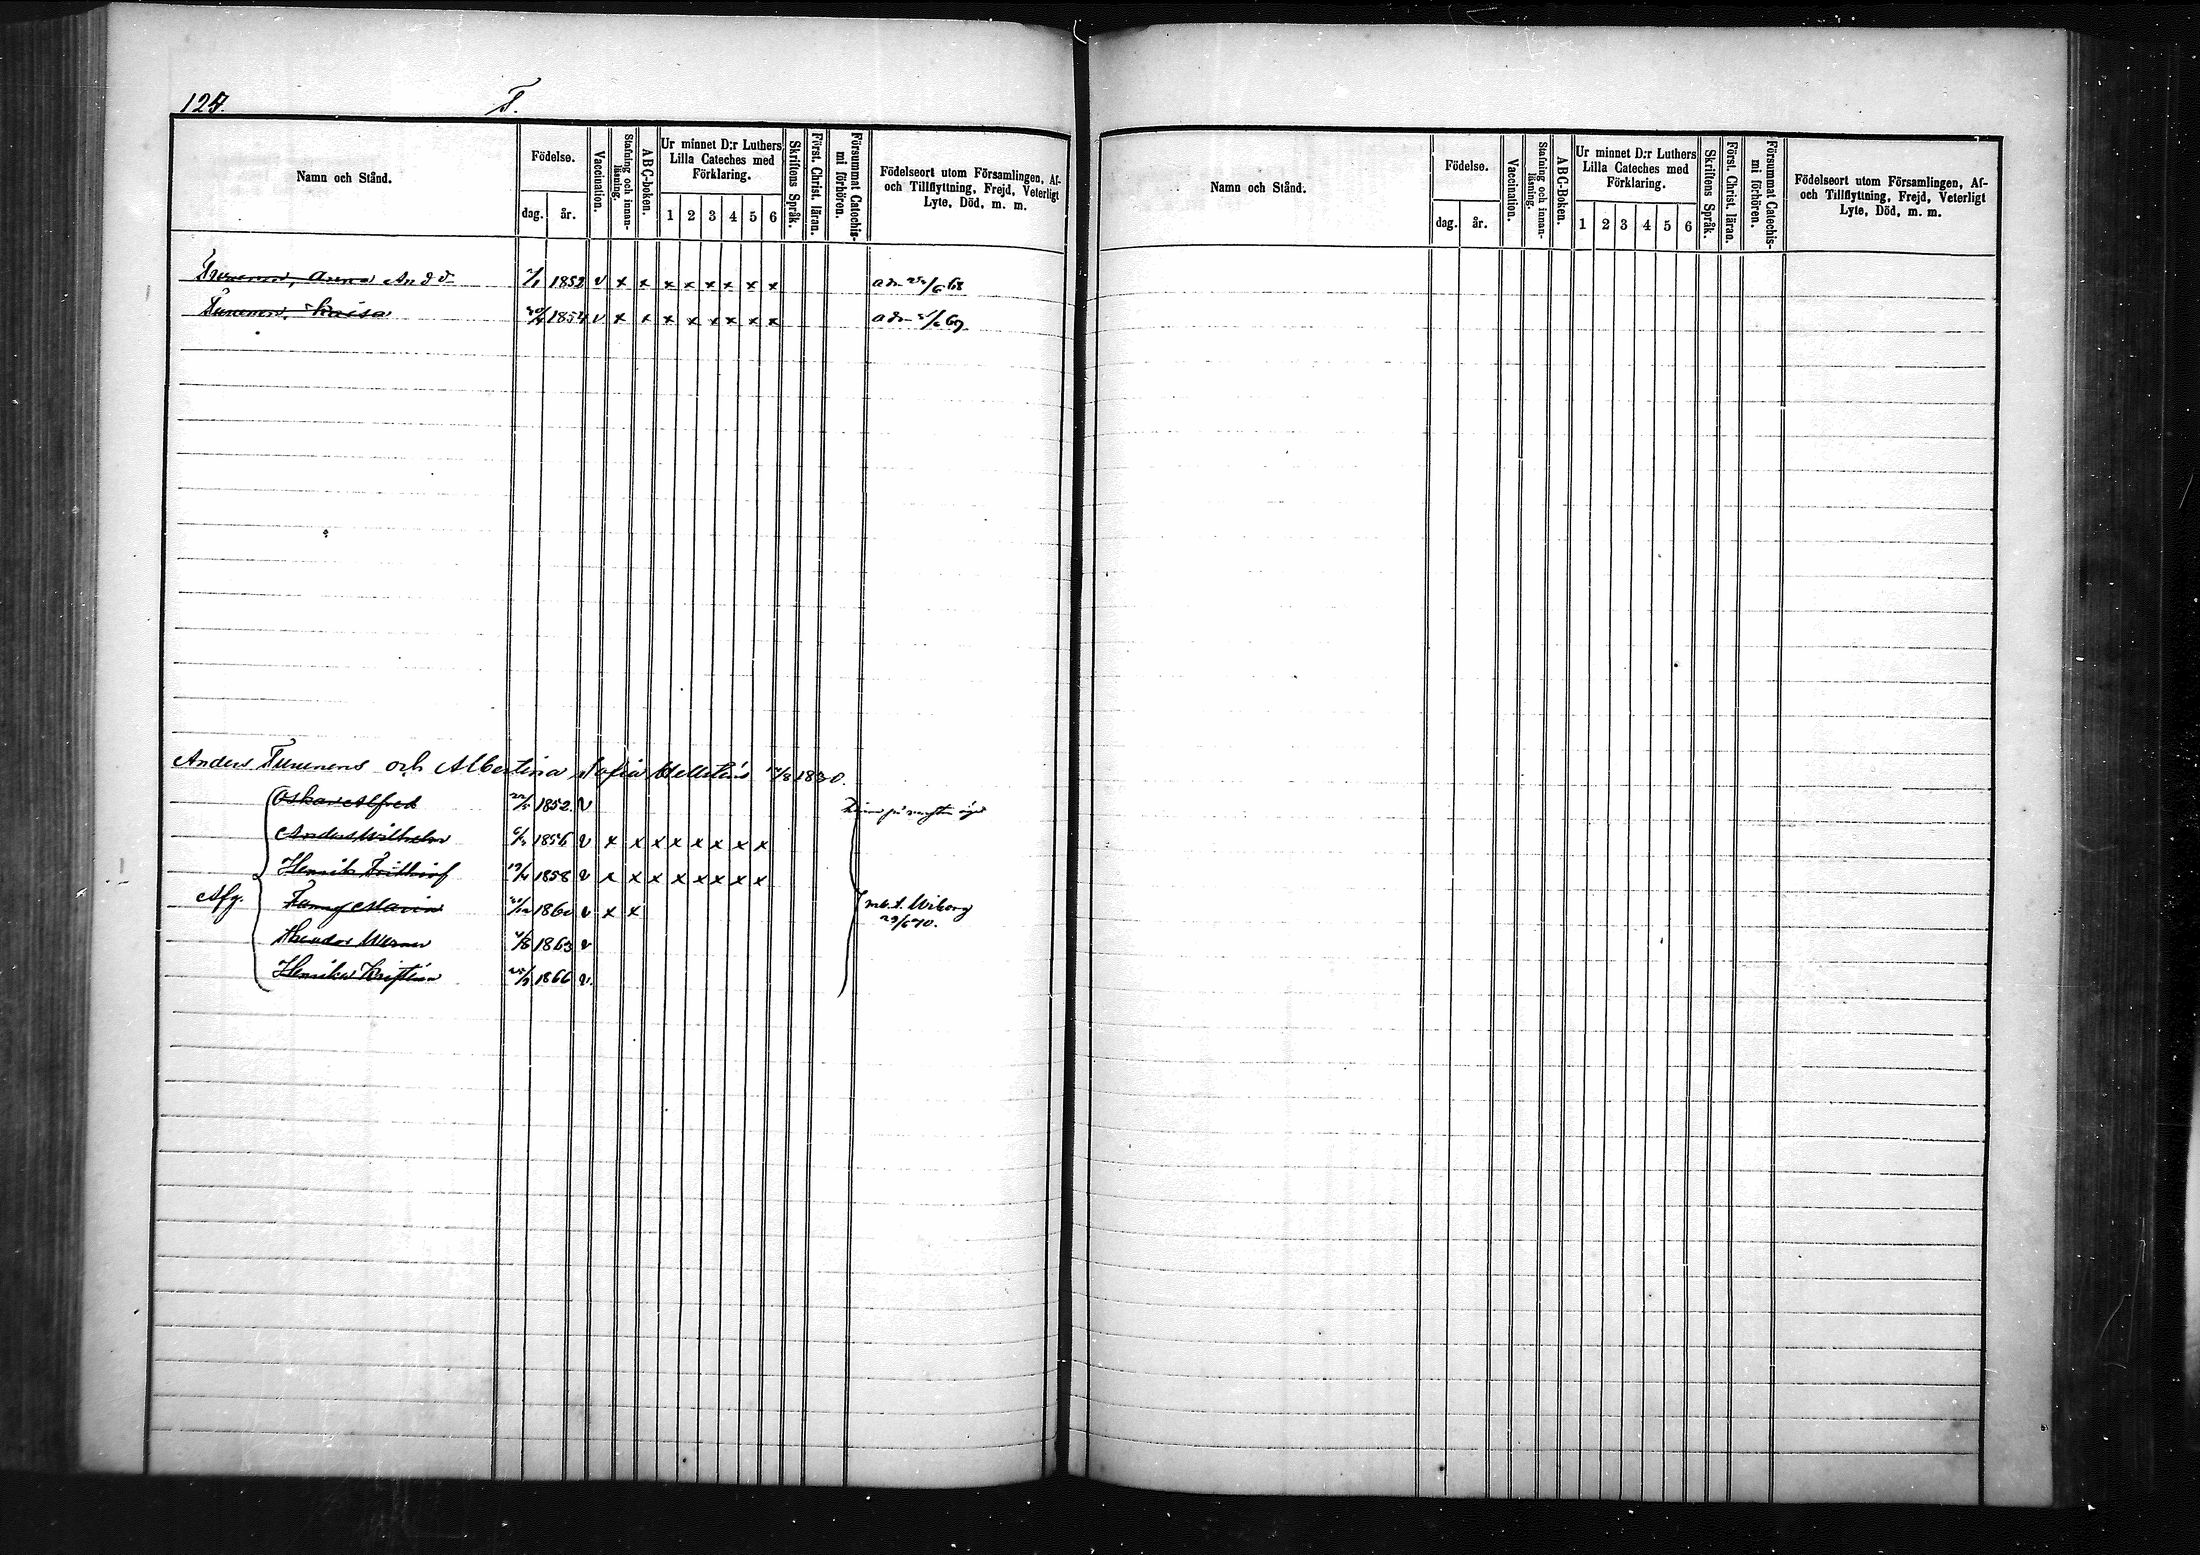 125.
T.
Namn och Stånd.
Födelse.
dag.
år.
Vaccination.
Stafning och innanläsning.
ABC-boken.
Ur minnet D:r Luthers
Lilla Cateches med
Förklaring.
1 2 3 4 5 6
Skriftens Språk.
Först. Christ. läran.
Försummat Catechismi förhören.
Födelseort utom Församlingen, Af-
och Tillflyttning, Frejd, Veterligt
Lyte, Död, m. m.
Turunen, Anna And d. 1852 v x x x x x x x x adm 68
Turunen, Kaisa 1854 v x x x x x x x x adm 69
Anders Turunens och Albertina Sofia Hellsténs 1830.
Oskar Alfred 22/5 1852. v
Anders Wilhelm 1856 v x x x x x x x x
Henrik Frithiof 1858 v x x x x x x x x
Afg. Fanny Maria 1860 v x x mb. t. Wiborg
29/6 70.
Theodor Werner 1863 v
Henrika Kristina 1866 v.
Namn och Stånd.
Födelse.
dag.
år.
Vaccination.
Stafning och innanläsning.
ABC-Boken.
Ur minnet D:r Luthers
Lilla Cateches med
Förklaring.
1 2 3 4 5 6
Skriftens Språk.
Först. Christ. läran.
Försummat Catechismi förhören.
Födelseort utom Församlingen, Af-
och Tillflyttning, Frejd, Veterligt
Lyte, Död, m. m.